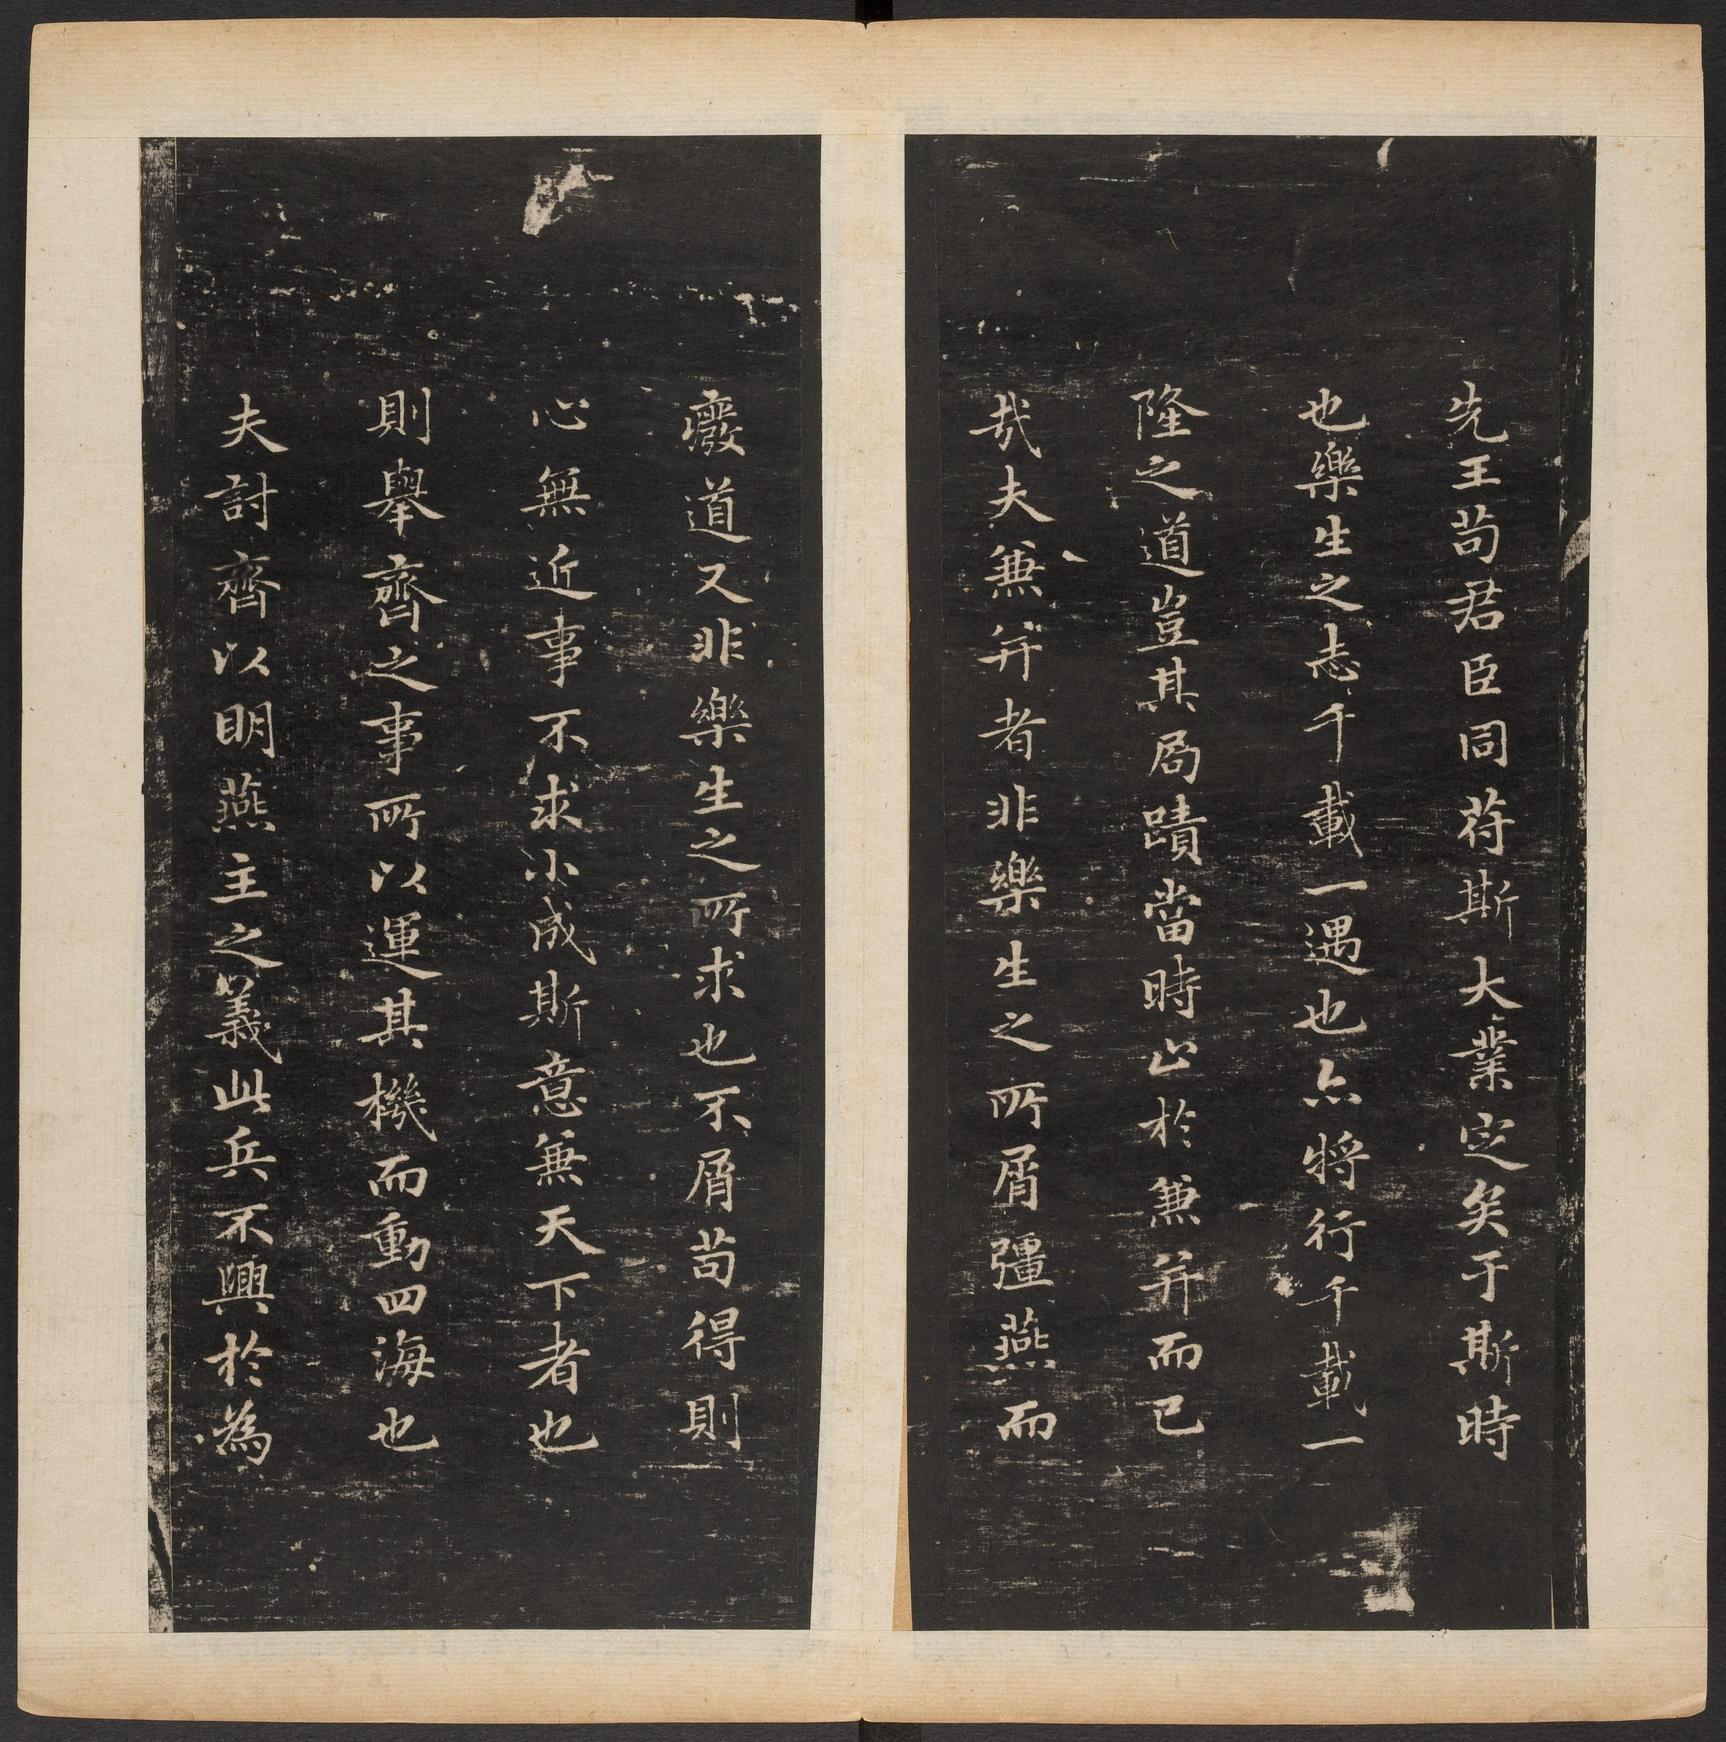 先王苟君臣同苻斯大業定矣于斯時
也樂生之志千載一遇也亦將行千載一
隆之道豈其局蹟當時止於兼并而已
哉夫兼并者非樂生之所屑彊燕而
廢道又非樂生之所求也不屑苟得則
心無近事不求小成斯意兼天下者也
則舉齊之事所以運其機而動四海也
夫討齊以明燕主之義此兵不興於為